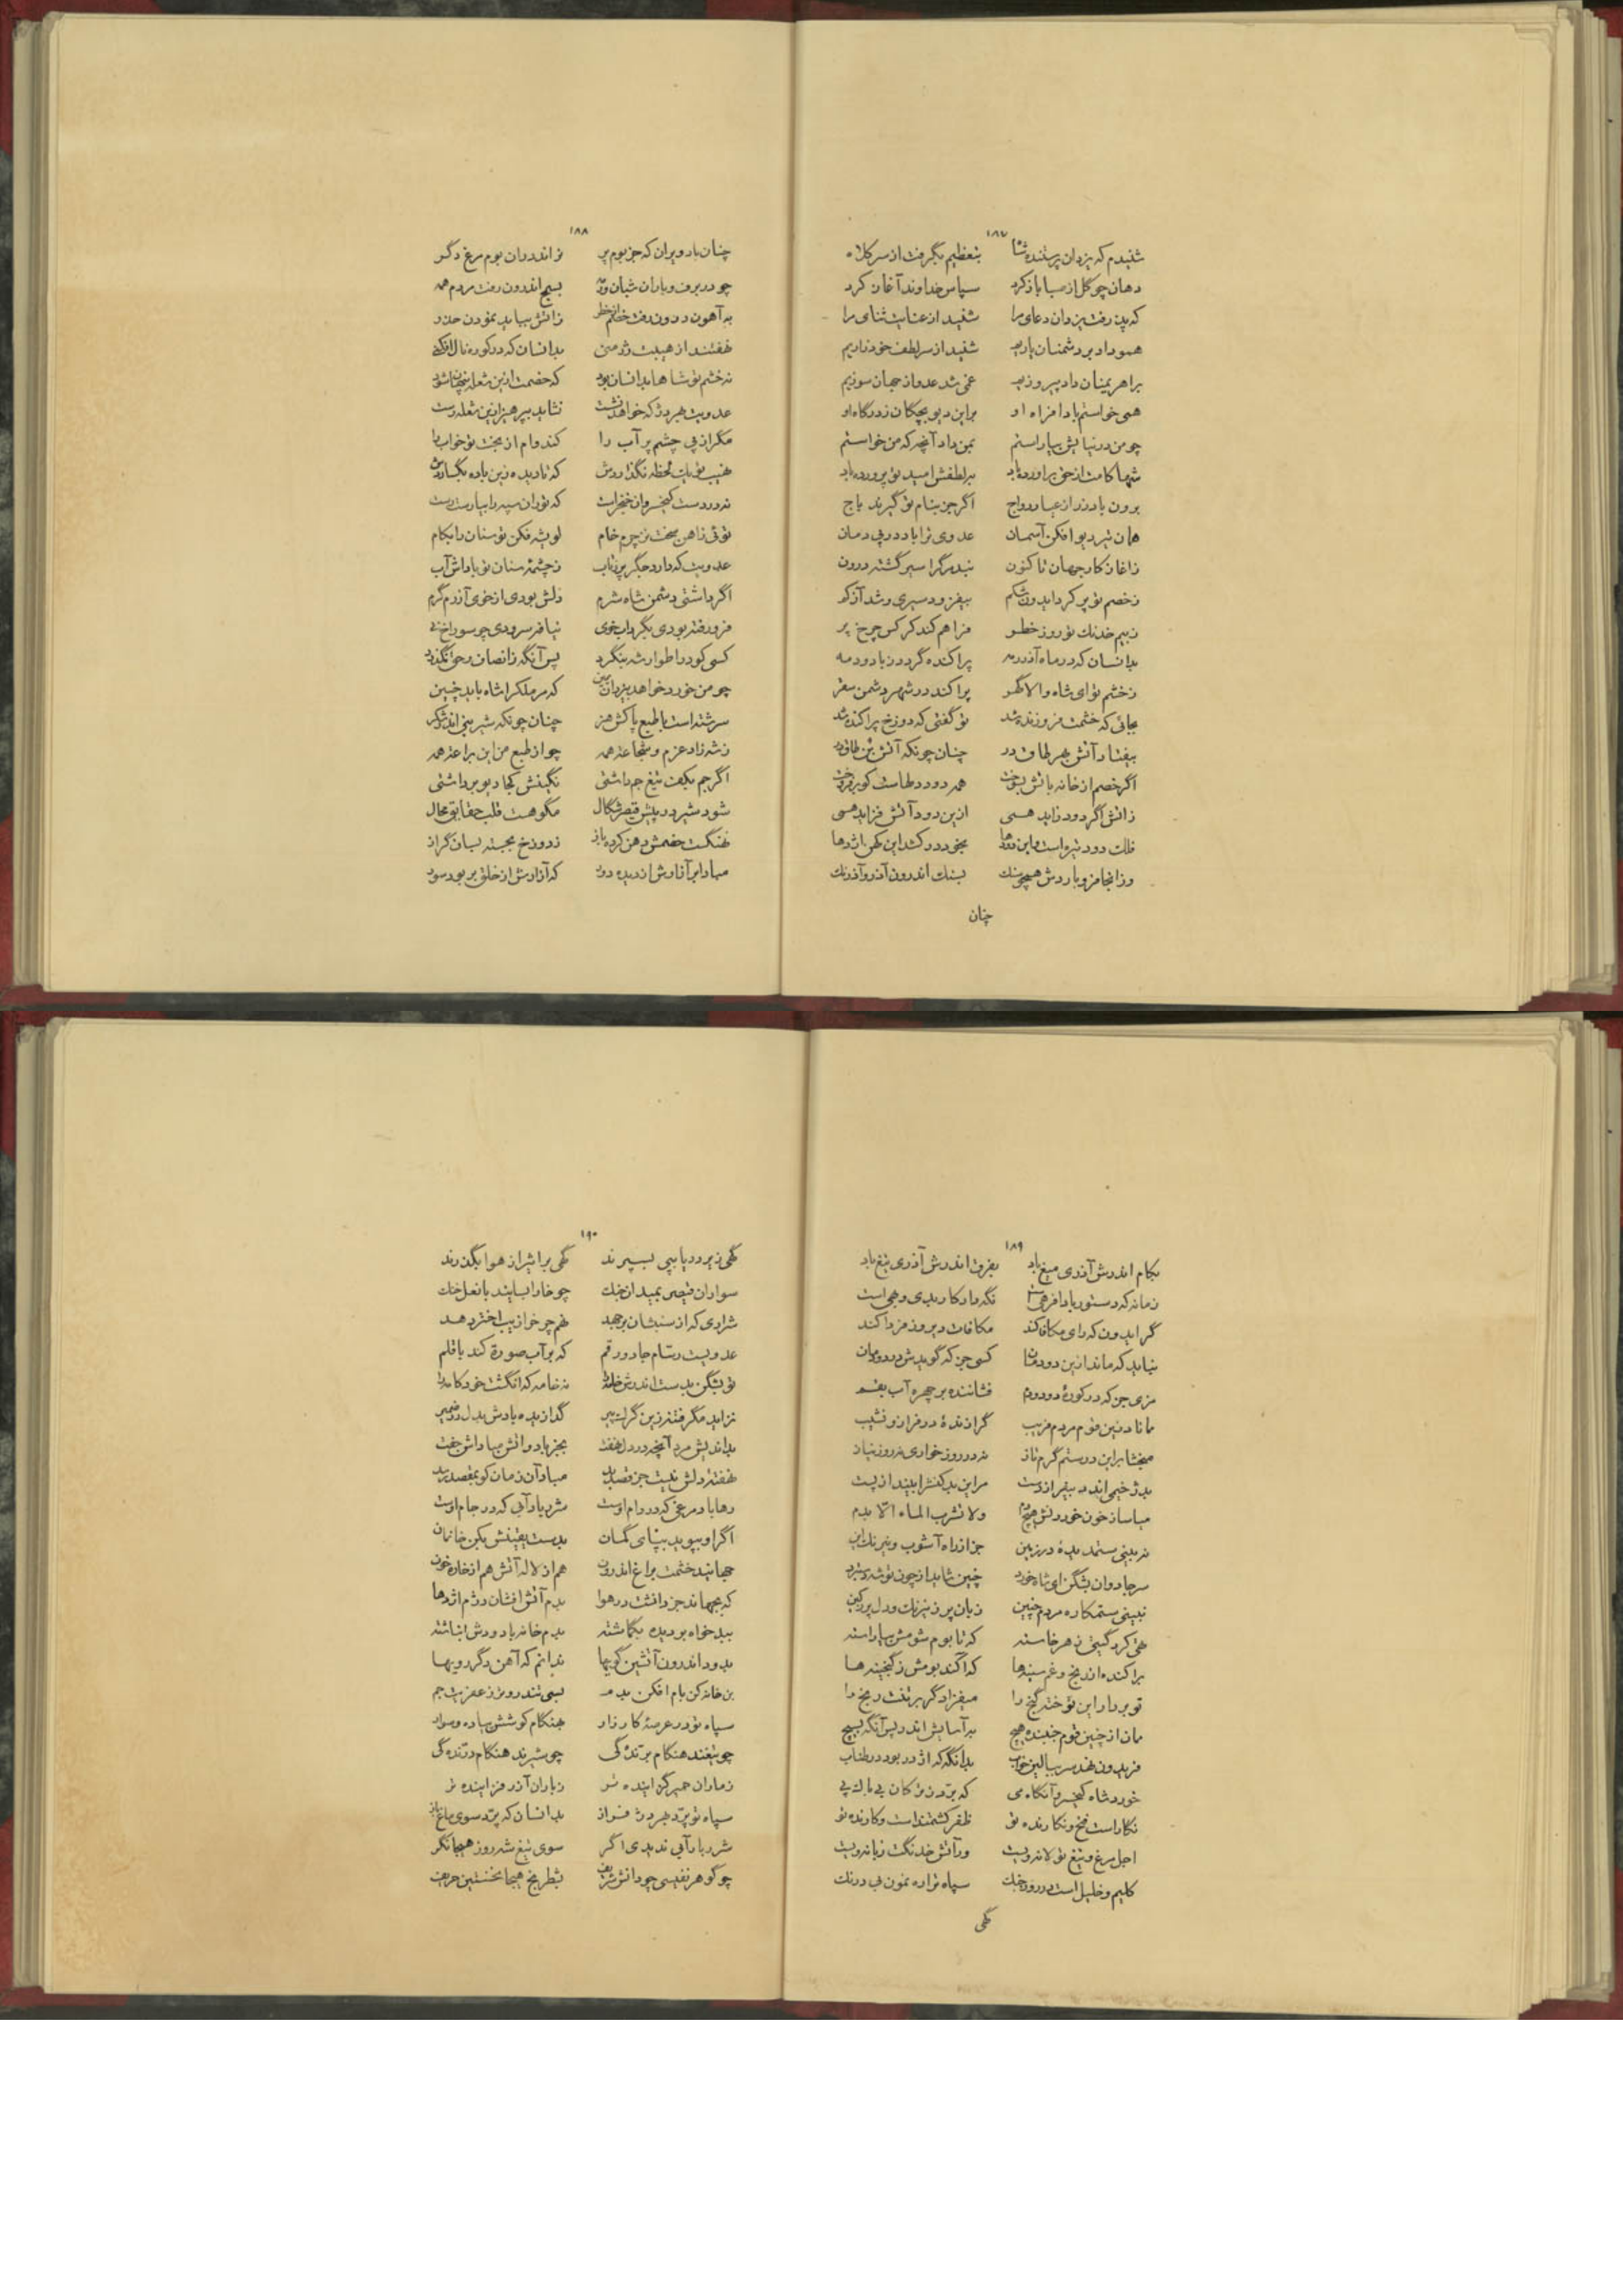 ۱۸۷
شنیدم که یزدان پرستنده شاه بتعظیم بگرفت از سر کلاه
دهان چو گل از صبا باز کرد سپاس خداوند آغاز کرد
که پذرفت یزدان دعای مرا شنید از عنایت ثنای مرا
همو داد بر دشمنان یاریم شنید از سر لطف خود زاریم
براهریمنان داد پیروزیم عمی شد عدو از جهان سوزیم
همی خواستم باد افراه او براین دیو بچگان ز درگاه او
چو من در نیایش بیاراستم بمن داد آنچه که من خواستم
شها کامت از حق براورده باد براطفش امید تو پرورده باد
برون باد زر از عیار و رواج اگر جز بنام تو گیرند باج
همان تیر دیو افکن آسمان عدوی ترا باد در پی دمان
ز آغاز کار جهان تا کنون نبد مرگرا سیر گشته درون
ز خصم تو پر کرد ایدون شکم بیفزود سیری و شد آز کم
ز بیم خدنک تو روز خطر فراهم کند کرکس چرخ پر
بدانسان که در ماه آذر مه پراکنده گردون باد و دمه
ز خشم تو ای شاه والا گهر پراکند در شهر دشمن سقر
بجائی که خشمت فروزنده شد تو گفتی که دوزخ پراکنده شد
بیفتاد آتش بهر طاق در چنان چونکه آتش بن طاق در
اگر خصم از خانه بآتش بسوخت همه دود دلهاست کو برفروخت
ز آتش اگر دود زاید همی ازین دود آتش فزاید همی
فلک دود تیره است و این دودها بخود در کشد این کهن اژدها
وزانجا فرو باردش همچو سنک بسنک اندرون آذر و آذرنک
چنان
۱۸۸
چنان باد ویران که جز بوم پر نراند دران بوم مرغ دگر
چو در برف و باران شبان و رمه بسیج اندرون رفت مردم همه
ز آتش بباید نمودن حذر
نهفتند از هیبت
نه خشم تو شاها بدانسان بود که خصمت ازین شعله پنهان شود
عدویت بهر دژ که خواهد نشست نشاید بپرهیز ازین شعله رست
مگر از پی چشم پر آب را کند وام از بخت تو خواب را
نهیب تو یک لحظه نگذاردش که تا دیده زین باده بگساردش
نه در دست کیخسروان خنجر است
توئی ز آهن سخت نز چرم خام لویشه فکن توسنان را بکام
عدویت که دارد جگر پر ز تاب ز چشمه سنان تو باداش آب
اگر داشتی دشمن شاه شرم دلش بودی از خوی آزرم گرم
فرو رفته بودی بگرداب خوی
کسی کو در اطوار شه بنگرد پس آنگه ز انصاف و حق نگذرد
چو من خورد خواهد بیزدان یمین که مر ملک را شاه باید چنین
سرشته است با طبع پاکش هنر چنان چونکه شیرینی اندر شکر
ز شه زاد عزم و شجاعت همه چو از طبع من این براعت همه
اگر جم بکف تیغ جم داشتی نگینش کجا دیو برداشتی
شود شیر در پیش قیصر شگال مگو هست قلب حقایق محال
نهنگت خصمش دهن کرده باز ز دوزخ بجسته بسان گراز
مبادا بر آزارش از دیده دود که آزارش از خلق بر بود سود
۱۸۹
بکام اندرش آذری میغ باد بفرق اندرش آذری تیغ باد
زمانه که دستور باد افرهی است نگه دار کار بدی و بهی است
گر ایدون که رای مکافا کند مکافات دیروز فردا کند
نباید که ماند ازین دودمان کسی جز که گویدش دردودمان
مزی جز که در کوره دود و دم فشاننده بر چهره آب بقم
مانا دزین قوم مردم فریب گرازنده در فراز و نشیب
مبخشا براین درستم گرم تاز نه در روز خواری نه روز نیاز
بد ژخیمی اندر بیفراز دست مر این بد کنش را بیند از پست
میاساز خون خوردنش هیچ دم ولا تشرب الماء الّا بدم
نه بینی ستمدیده در زمین جز از راه آشوب و نیرنک این
سر جادوان بشکن ای شاه خورد چنین شاید از چون تو شه دستبرد
نبینی ستمکاره مردم چنین زبان پر ز نیرنک و دل پر ز کین
تهی کرد گیتی ز هر خاسته که تا بوم شومش بیاراسته
پراکنده اندیخ و غم سینه‌ها که آکند بومش ز گنجینه‌ها
تو بردار این توخته گنج را میفزا دگر بر تنت رنج را
مان از چنین قوم جنبنده هیچ برآسایش اندر پس آنگه بسیج
فریدون نهد سر ببالین خواب بدانگه که اژدر بود در طناب
خورد شاه کیخسرو آنگاه می که برّد ز ترکان بی باک پی
نگار است فتح و نگارنده تو ظفر کشتمند است و کارنده تو
اجل مرغ و تیغ تو لانه ویست ور آتش خدنگت زبانه ویست
کلیم و خلیل است در روز جنک سپاه ترا ره نمون بی درنک
گهی
۱۹۰
گهی زیر دریا بپی بسپرند گهی بر اثیر از هوا بگذرند
سواران قیصر بمیدان جنک چو خارا بسایند با نعل خنک
شراری که از سنبشان برجهد نهم چرخ از بیب اختر دهد
عدویست رسّام جادو رقم که بر آب صورة کند با قلم
تو بشکن بدست اندرش خامه را نه خامه که انگشت خود کامه را
نزاید مگر فتنه زین گرک پیر
بداندیش مرد آنچه در دل نهفت بجز باد و آتش مباداش جفت
نهفته دلش نیست جز قصد بد مباد آن زمان کو بمقصد رسد
رها باد مرغی که در دام اوست شرر باد آبی که در جام اوست
اگر او بپوید بپنای گمان بدست یقینش بکن خانمان
جهانید خشمت براغ اندرون هم از لاله آتش هم از خاره خون
که بجهاند جز دانشت در هوا بدم آتش افشان دژم اژدها
ببد خواه بر دیده بگماشته بدم خانه باد و دش انباشته
بدود اندرون آتشین کویها ندانم که آهن دگر رویها
بن خانه کن بام افکن بدمه
سپاه تو در عرصهٔ کارزار بهنگام کوشش پیاده و سوار
چو تیغند هنگام برّندگی چو شیرند هنگام درّندگی
ز ماران حمیر گزاینده تر ز باران آذر فزاینده تر
سپاه تو برّد بهر دژ فراز بدانسان که برّد سوی ماغ باز
شرر باد آبی ندیدی اگر سوی تیغ شه روز هیجا نگر
چو گوهر نفیسی چو دانش شریف بشطرنج هیجا نخستین حریف